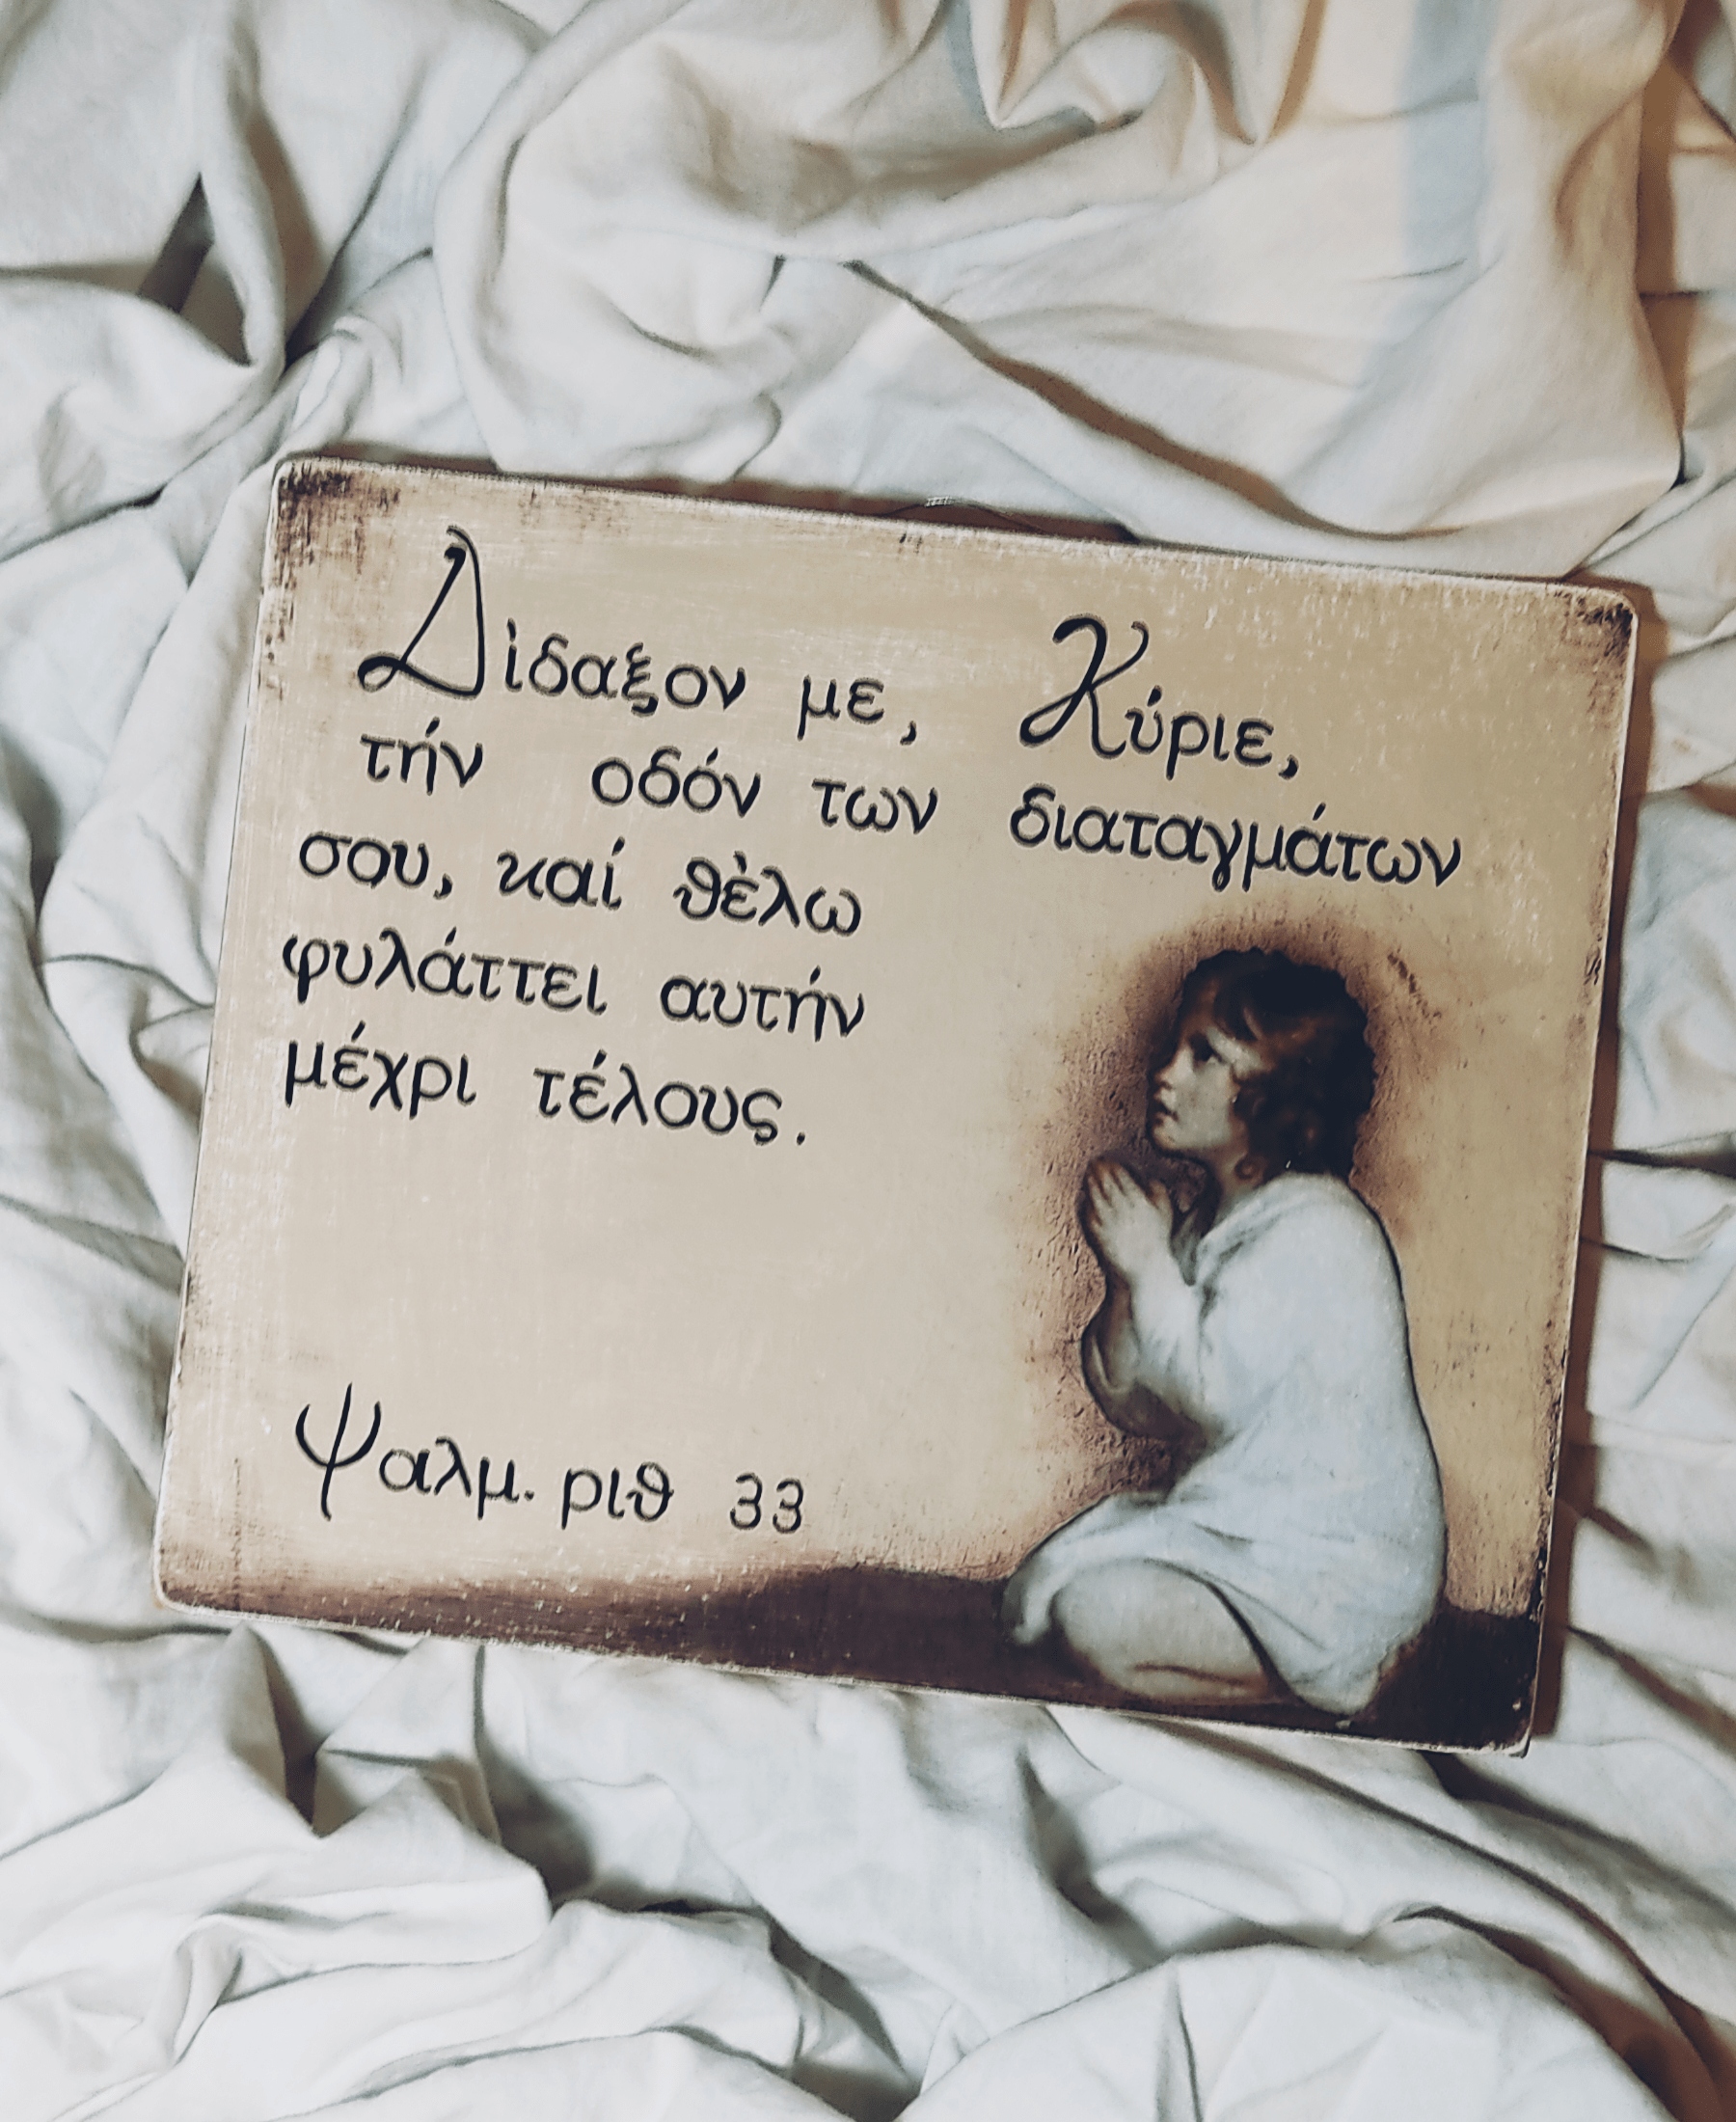 Δὶδαξον με, Κύριε,
τήν οδόν των διαταγμάτων
σου, καί θὲλω
φυλάττει αυτήν
μέχρι τέλους.
Ψαλμ. ριθ 33